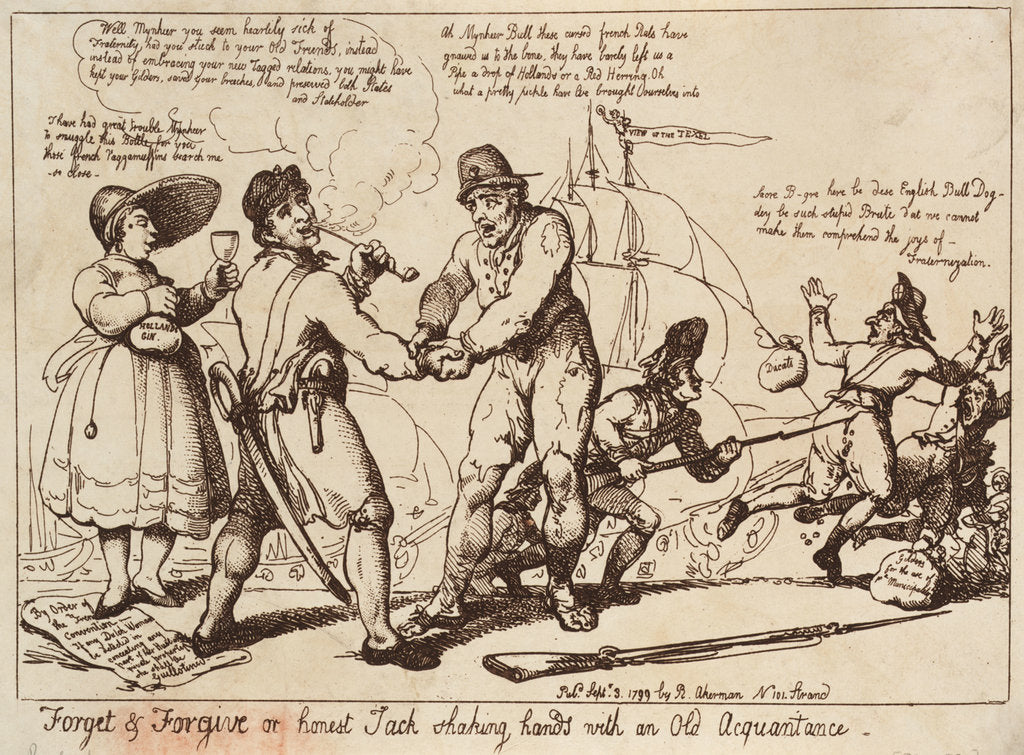 Well Mynheer you seem heartily sick of
Fraternity, had you stuck to your Old Friends, instead
instead of embracing your new Tagged relations, you might have
kept your Gilders, saved your breeches, and preserved both States
and Stateholder
Ah Mynheer Bull these cursed french Rats have
gnawed us to the bone, they have barely left us a
Pipe a drop of Hollands or a Red Herring. Oh
what a pretty pickle have We brought Ourselves into
I have had great trouble Mynheer
to smuggle this Bottle for you
those french Raggamuffins search me
so close -
VIEW OF THE TEXEL
Sacre B-gre here be dese English Bull Dog-
dey be such stupid Brute dat we cannot
make them comprehend the joys of -
Fraternization.
HOLLANDS
GIN
Ducats
Gilders
for the use of
Municipality
By Order of
the French
Convention
If any Dutch Woman
be detected in
concealing any
part of her Husbands
property
she shall be
Guillotined
Pubd. Septr. 3. 1799 by R. Akerman N 101. Strand
Forget & Forgive or honest Jack shaking hands with an Old Acquantance -